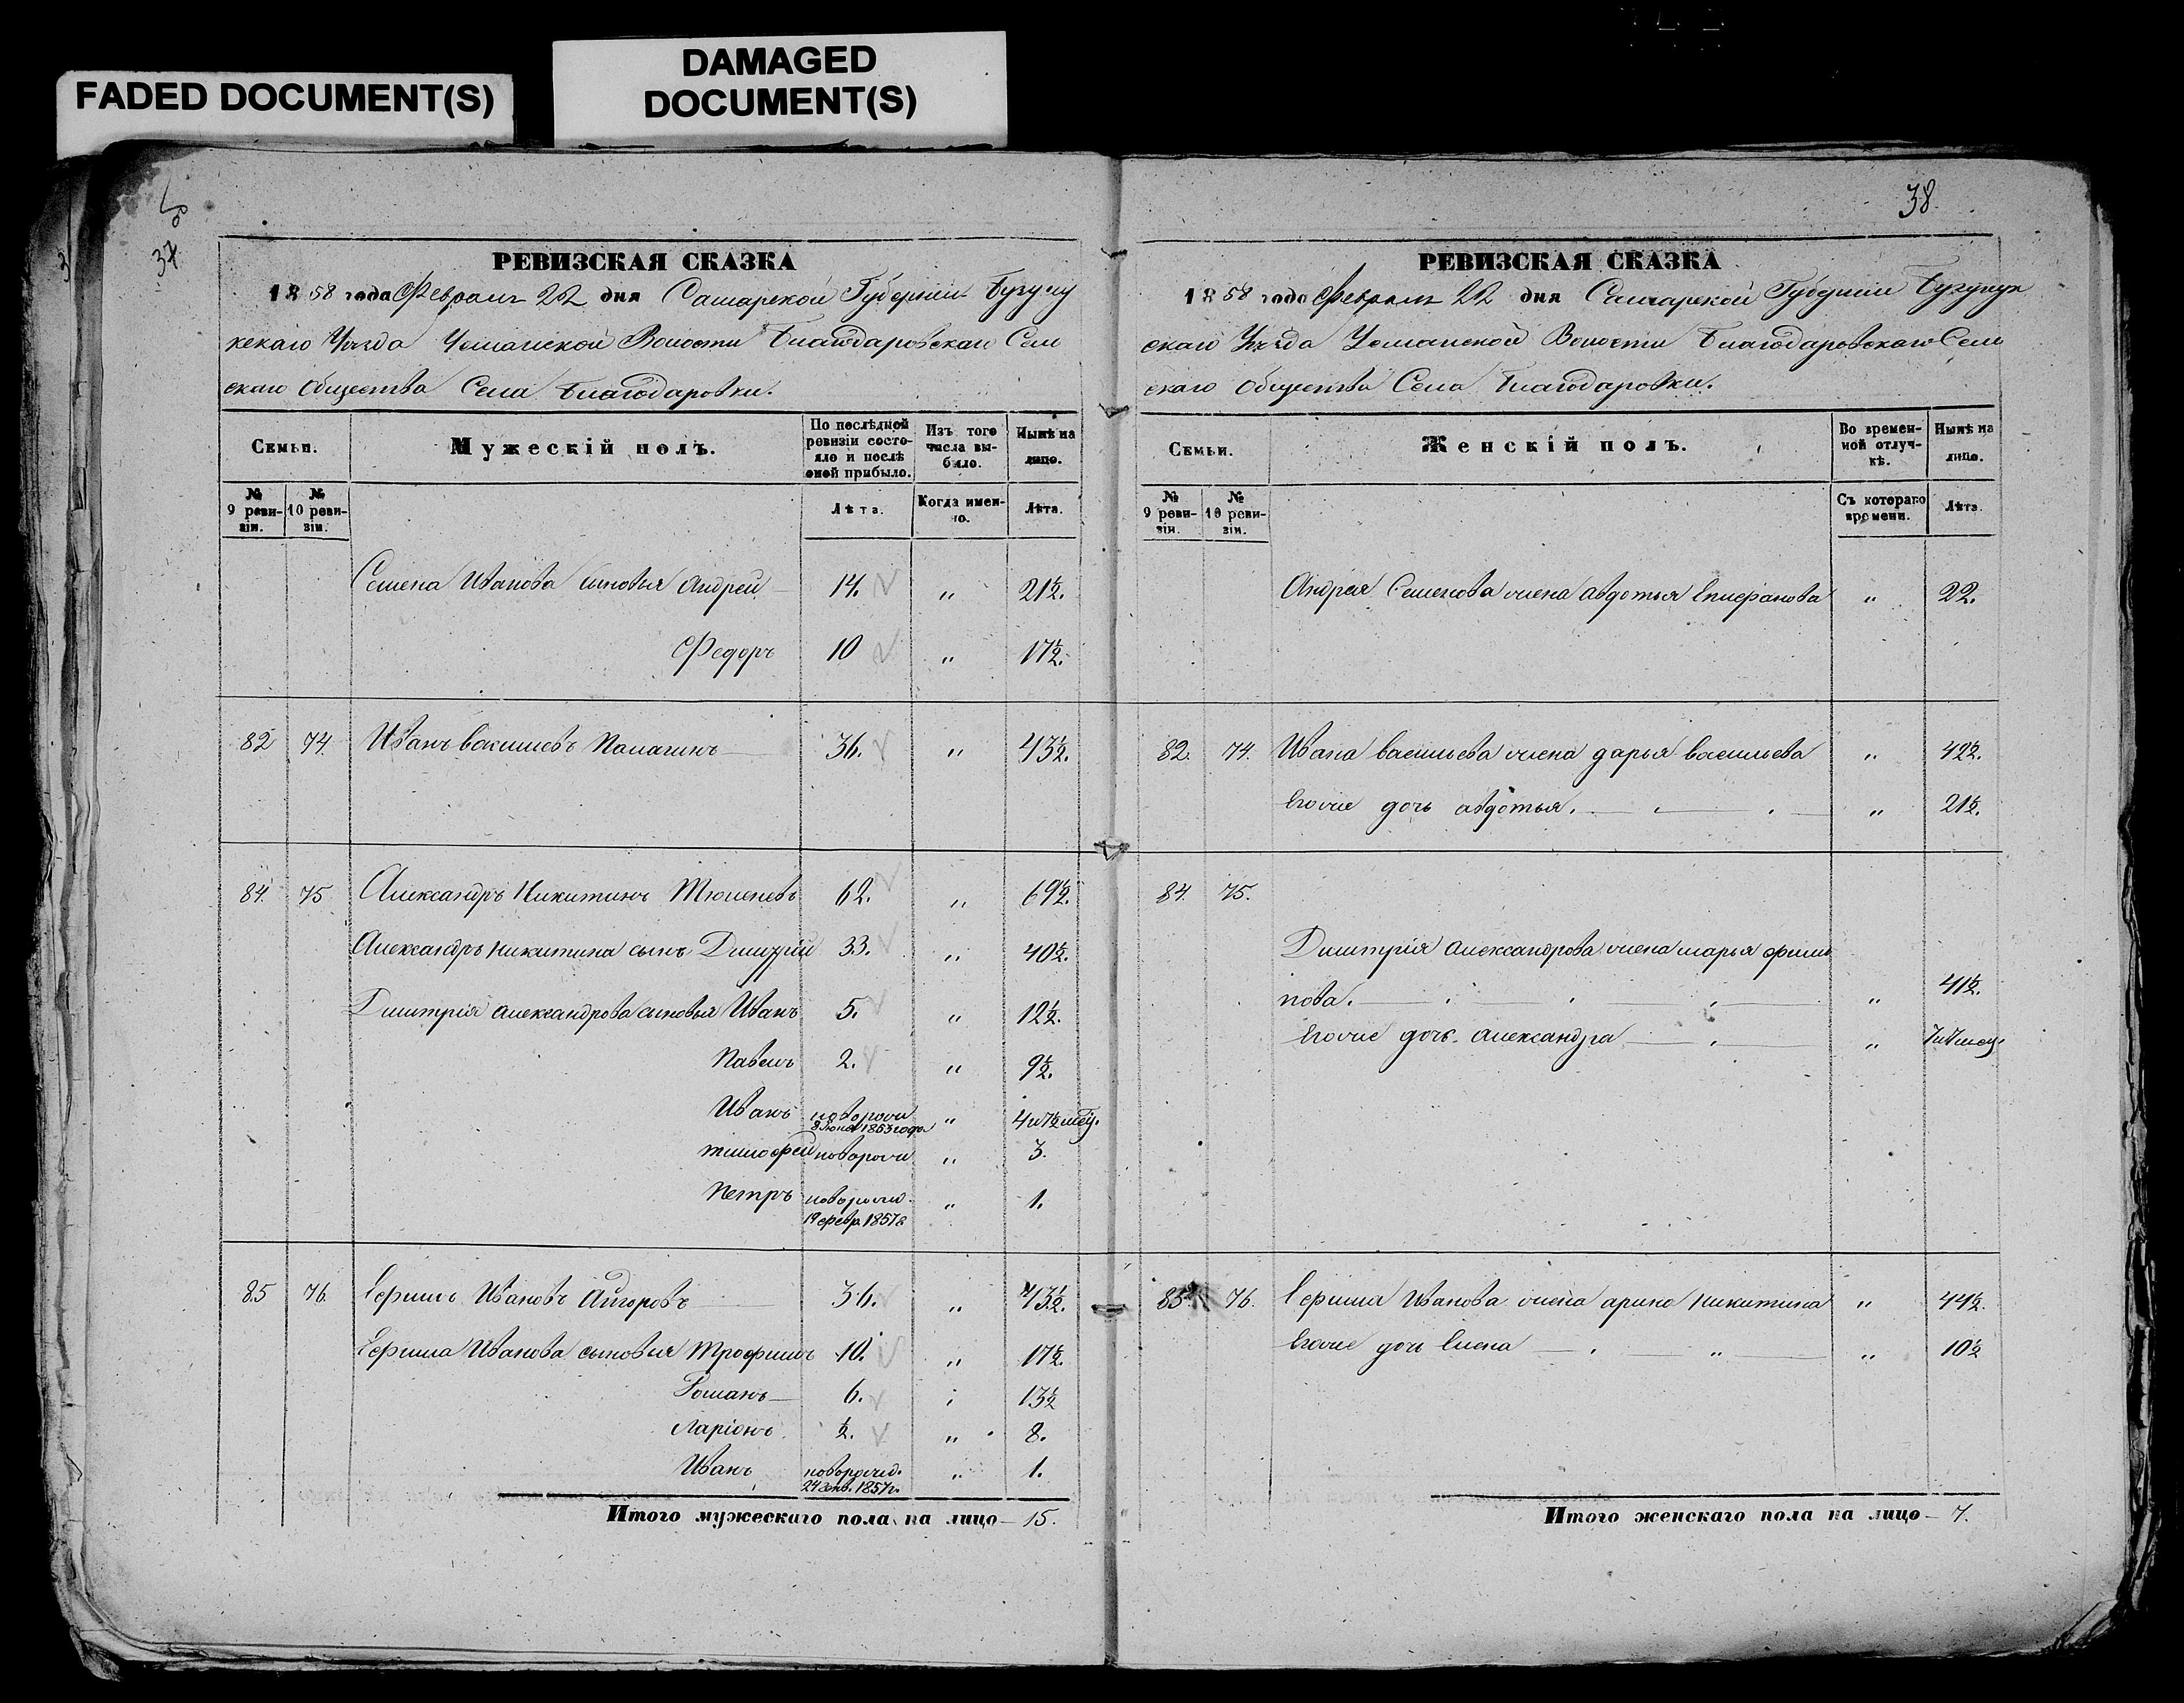 FADED DOCUMENT(S)
DAMAGED
DOCUMENT(S)
37
РЕВИЗСКАЯ СКАЗКА
1858 года Февраля 22 дня Самарской Губернии Бугуру
скаго Уѣзда Усманской Волости Благодаровскаго Сель
скаго Общества Села Благодаровки.
Семьи.
Мужескій полъ.
По послѣдной ревизіи состояло и послѣ оной прибыло.
Изъ того числа выбыло.
Нынѣ на лицо.
№ 9 ревизіи.
№ 10 ревизіи.
Лѣта.
Когда именно.
Лѣта.
Семена Иванова сыновья Андрей 14. " 21½.
Федоръ 10 " 17½.
82 74. Иванъ Васильевъ 36. " 43½.
84. 75 Александръ Никитинъ 62. " 69½.
Александръ Никитина сынъ Дмитрій 33. " 40½.
Дмитрія Александрова сыновья Иванъ 5. " 12½.
Павелъ 2. " 9½.
Иванъ новорож 8 Іюня 1853 года " 4 и 7½ мѣц.
Тимофей новорож " 3.
Петръ новорожд. 19 февр. 1857 г " 1.
85 76. Ефимъ Ивановъ 36. " 43½.
Ефима Иванова сыновья Трофимъ 10. " 17½.
Романъ 6. " 13½
Ларіонъ ½. " 8.
Иванъ новорожд. 24 янв. 1857 г. " 1.
Итого мужескаго пола на лицо 15.
38.
РЕВИЗСКАЯ СКАЗКА
1858 года Февраля 22 дня Самарской Губерніи Бугурун
скаго Уѣзда Усманской Волости Благодаровскаго Сель
скаго Общества Села Благодаровки.
Семьи.
Женскій полъ.
Во временной отлучкѣ.
Нынѣ на лицо.
№ 9 ревизіи.
№ 10 ревизіи.
Съ котораго времени.
Лѣта.
Андрея Семенова жена Авдотья Епифанова " 22.
82. 74. Ивана Васильева жена Дарья Васильева " 42½.
Егоже дочь Авдотья. " 21½.
84. 75.
Дмитрія Александрова жена Марья Фили
пова. " 41½.
Егоже дочь Александра "
85 76. Ефима Иванова жена Арина Никитина " 44½.
Егоже дочь Елена " 10½
Итого женскаго пола на лицо 7.